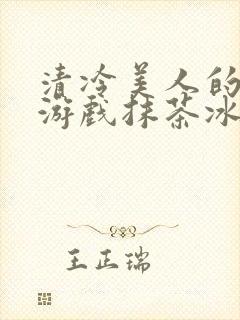 清冷美人的
游戏抹茶冰
王正瑞